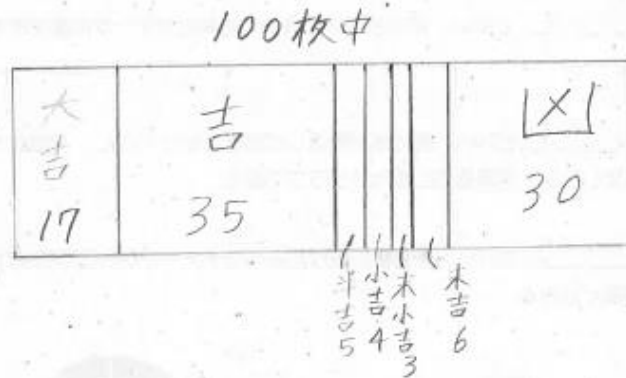 100枚中
大吉
17
吉
35
半吉5
小吉4
末小吉3
末吉6
凶
30